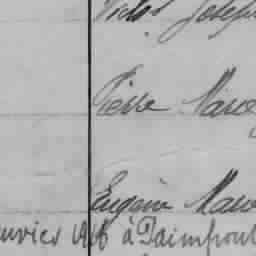 Victor Joseph
Pierre Marc
Eugène Marc
anvier 1916 à Paimpont